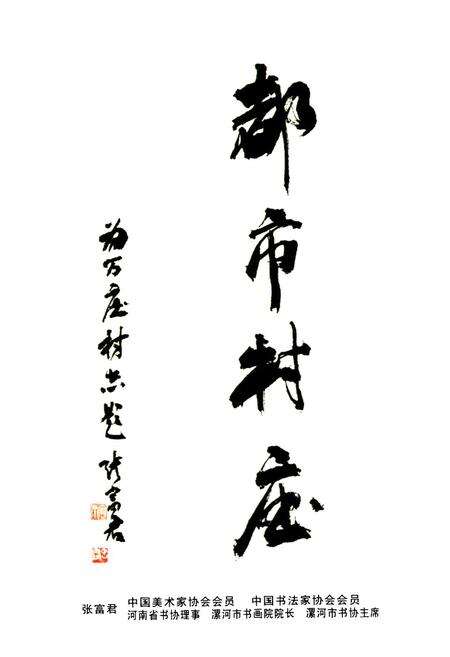 都市村庄
为万庄村志题 张富君
张富君
中国美术家协会会员 中国书法家协会会员
河南省书协理事 漯河市书画院院长 漯河市书协主席